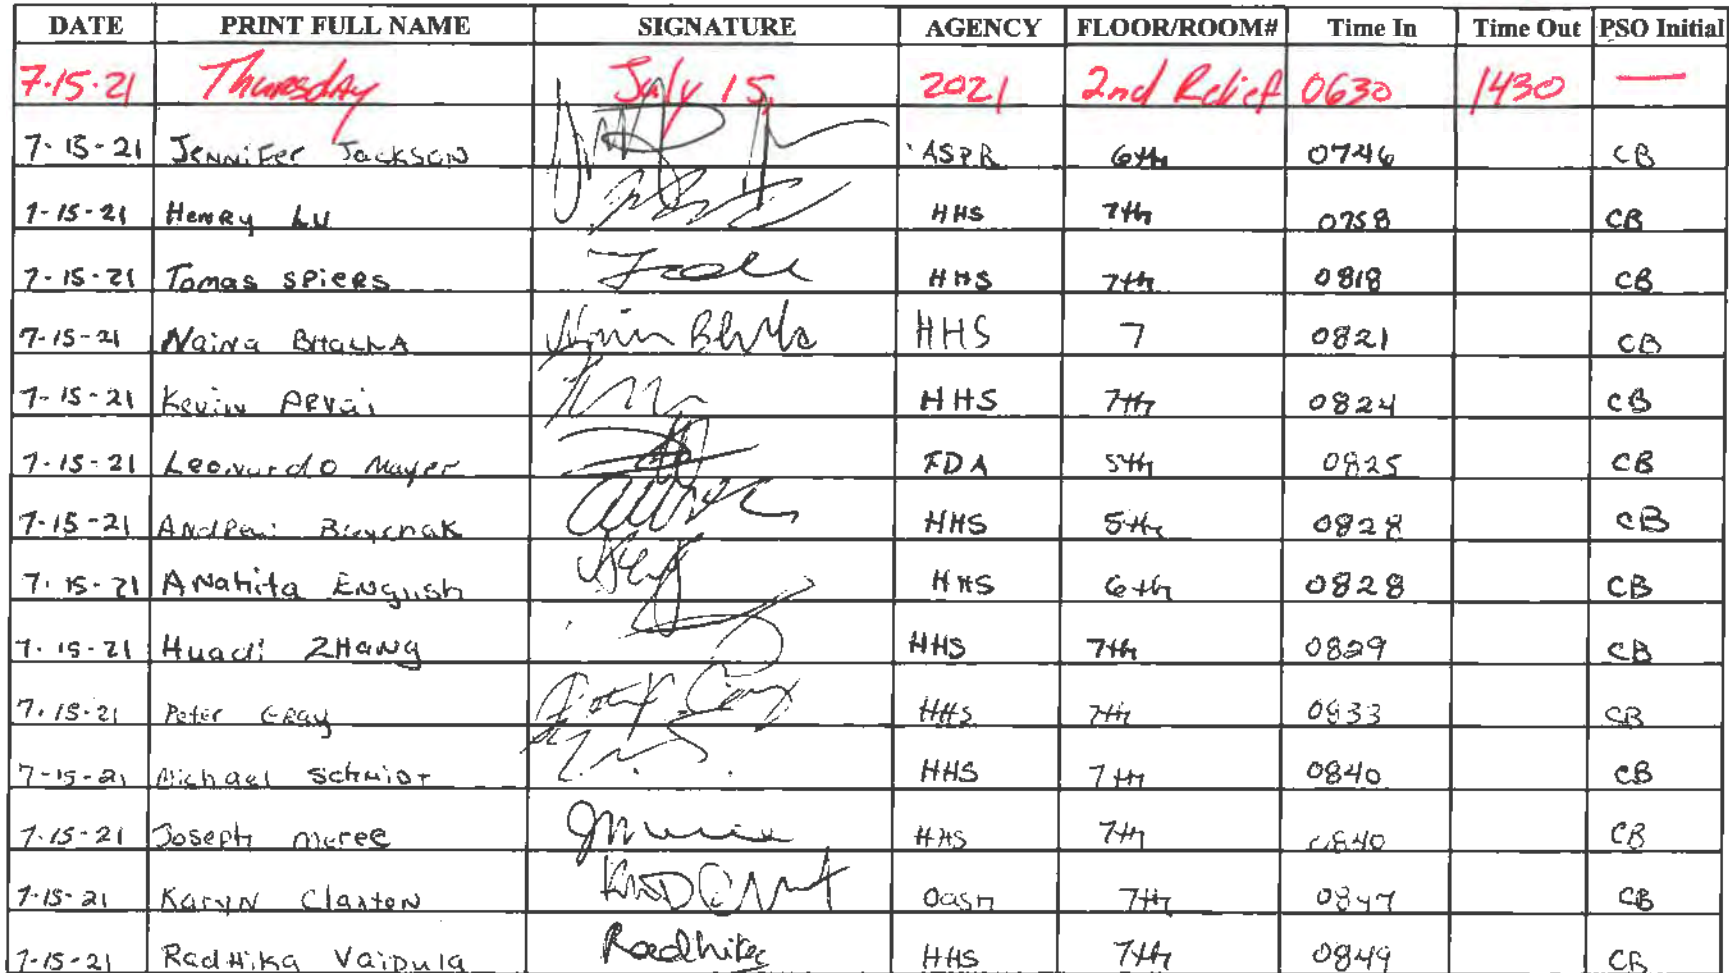 DATE PRINT FULL NAME SIGNATURE AGENCY FLOOR/ROOM# Time In Time Out PSO Initial
7.15.21 Thursday July 15, 2021 2nd Relief 0630 1430 —
7-15-21 Jennifer Jackson ASPR 6th 0746 CB
7-15-21 Henry Lu HHS 7th 0758 CB
7-15-21 Tomas Spiers HHS 7th 0818 CB
7-15-21 Naina Bhalla HHS 7 0821 CB
7-15-21 Kevin Arvai HHS 7th 0824 CB
7-15-21 Leonardo Mayer FDA 5th 0825 CB
7-15-21 HHS 5th 0828 CB
7-15-21 Anahita English HHS 6th 0828 CB
7-15-21 Huadi Zhang HHS 7th 0829 CB
7-15-21 Peter Gray HHS 7th 0833 CB
7-15-21 Michael Schmidt HHS 7th 0840 CB
7-15-21 Joseph Maree HHS 7th 0840 CB
7-15-21 Karyn Claxton Oash 7th 0847 CB
7-15-21 Radhika Vaidula Radhika HHS 7th 0849 CB